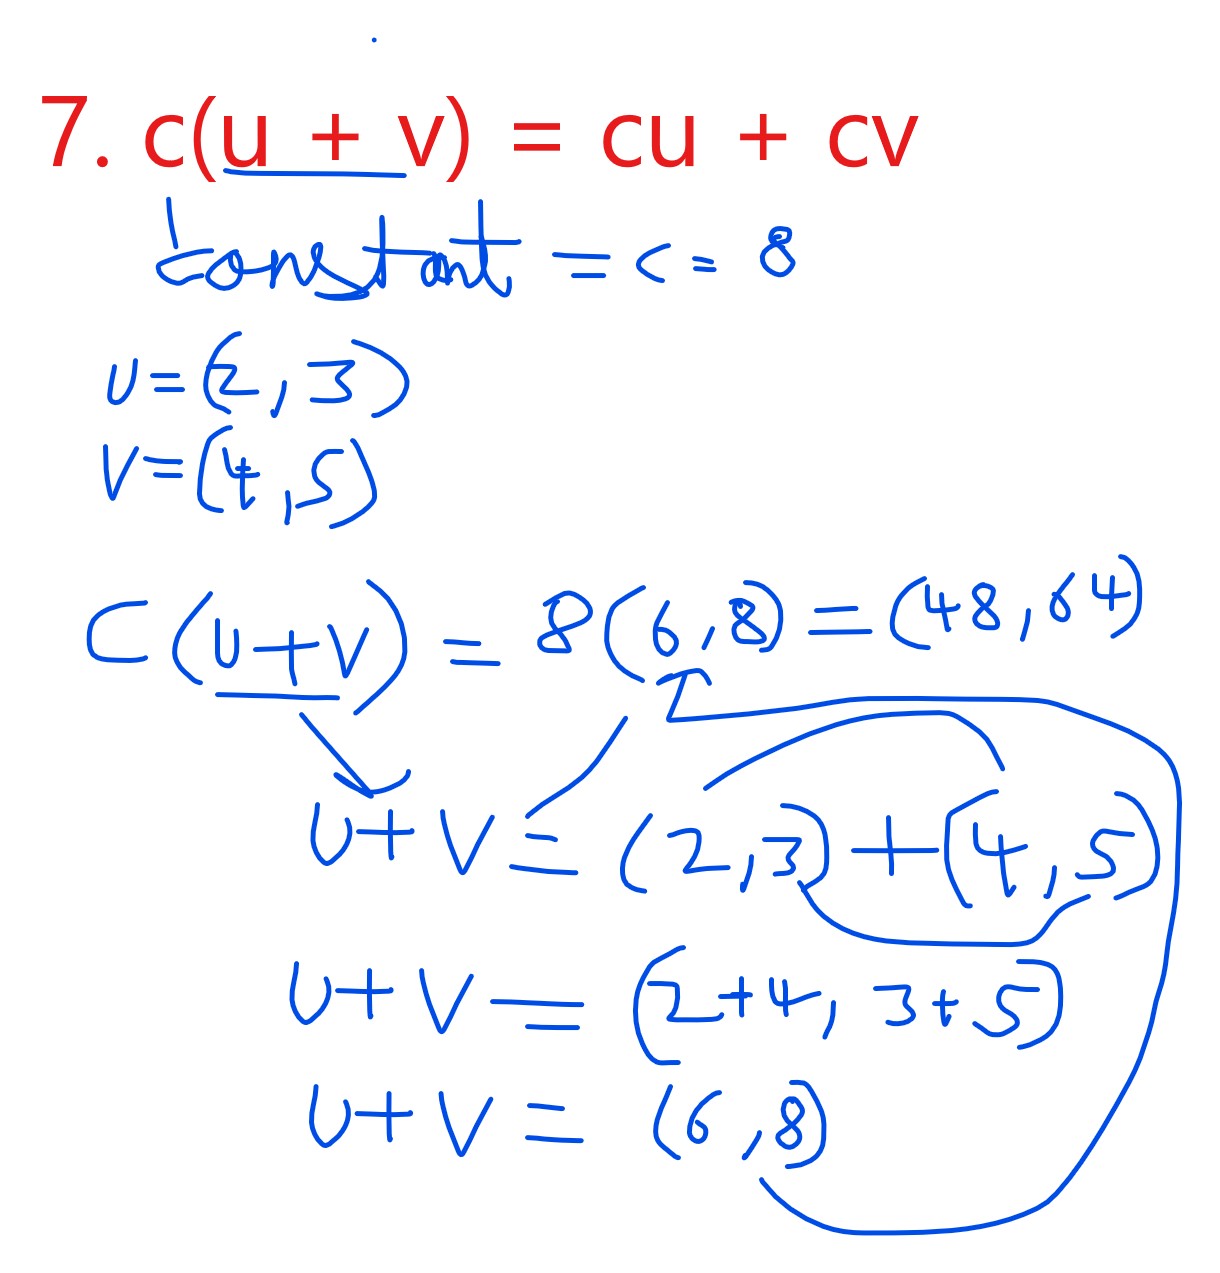 7. c(u + v) = cu + cv
constant = c = 8
u = (2, 3)
v = (4, 5)
c(u+v) = 8(6, 8) = (48, 64)
u+v = (2, 3) + (4, 5)
u+v = (2+4, 3+5)
u+v = (6, 8)